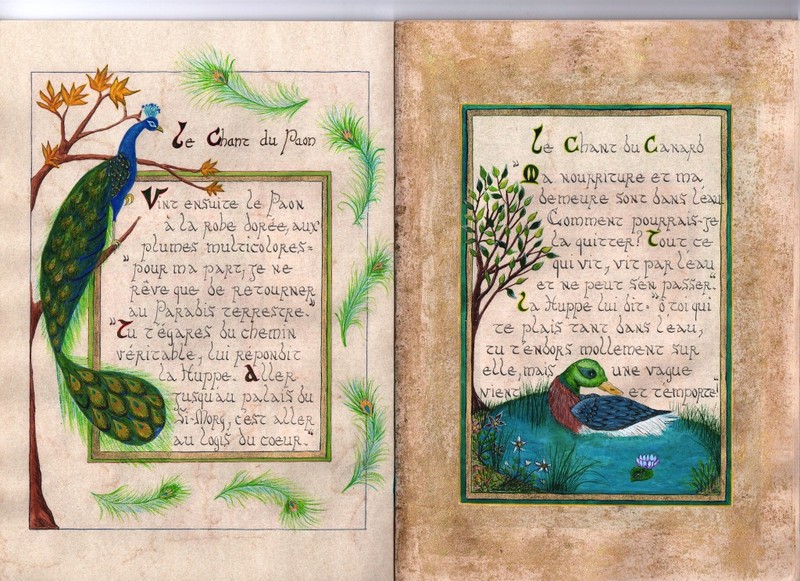 Le Chant du Paon
Vint ensuite le Paon
à la robe dorée, aux
plumes multicolores=
"pour ma part, je ne
rêve que de retourner
au Paradis terrestre."
"Tu t'égares du chemin
véritable, lui répondit
la Huppe. Aller
jusqu'au palais du
Si-Morg, c'est aller
au logis du coeur."
Le Chant du Canard
"Ma nourriture et ma
demeure sont dans l'eau
Comment pourrais-je
la quitter? Tout ce
qui vit, vit par l'eau
et ne peut s'en passer."
La Huppe lui dit= "ô toi qui
te plais tant dans l'eau,
tu t'endors mollement sur
elle, mais une vague
vient et t'emporte!